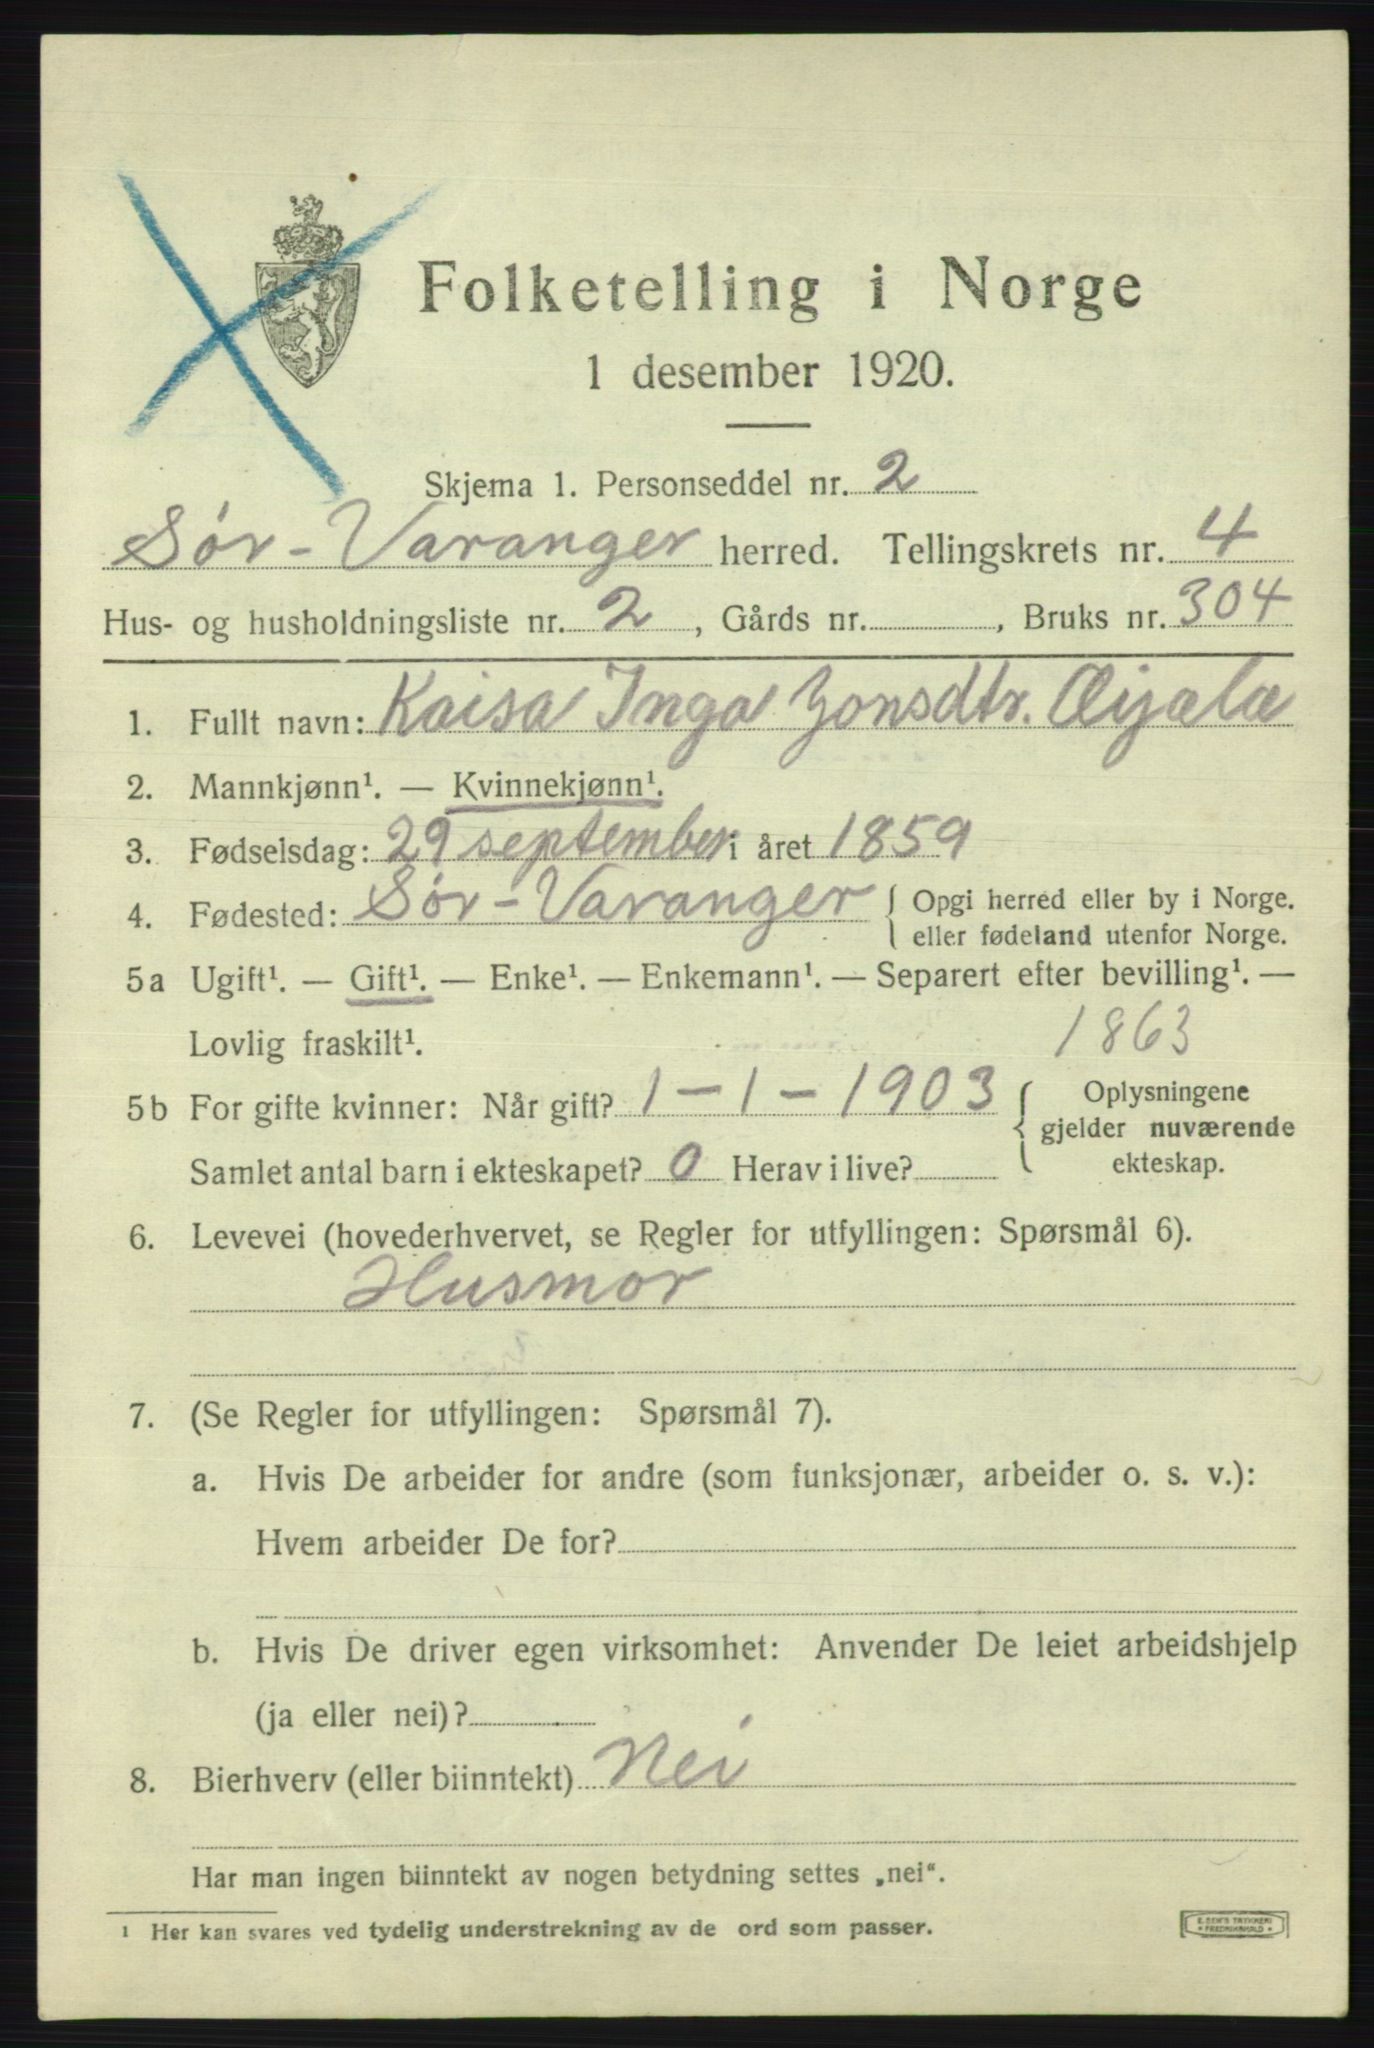 Folketelling i Norge
1 desember 1920.
Skjema 1. Personseddel nr. 2
Sør-Varanger herred. Tellingskrets nr. 4
Hus- og husholdningsliste nr. 2, Gårds nr. , Bruks nr. 304
1. Fullt navn: Kaisa Inga Jonsdtr.
2. Mannkjønn¹. — Kvinnekjønn¹.
3. Fødselsdag: 29 september i året 1859
4. Fødested: Sør-Varanger { Opgi herred eller by i Norge.
eller fødeland utenfor Norge.
5a Ugift¹. — Gift¹. — Enke¹. — Enkemann¹. — Separert efter bevilling¹. —
Lovlig fraskilt¹.
1863
5b For gifte kvinner: Når gift? 1-1-1903 { Oplysningene
gjelder nuværende
ekteskap.
Samlet antal barn i ekteskapet? 0 Herav i live?
6. Levevei (hovederhvervet, se Regler for utfyllingen: Spørsmål 6).
Husmor
7. (Se Regler for utfyllingen: Spørsmål 7).
a. Hvis De arbeider for andre (som funksjonær, arbeider o. s. v.):
Hvem arbeider De for?
b. Hvis De driver egen virksomhet: Anvender De leiet arbeidshjelp
(ja eller nei)?
8. Bierhverv (eller biinntekt) Nei
Har man ingen biinntekt av nogen betydning settes „nei“.
¹ Her kan svares ved tydelig understrekning av de ord som passer.
E. SEM'S TRYKKERI
FREDRIKSHALD